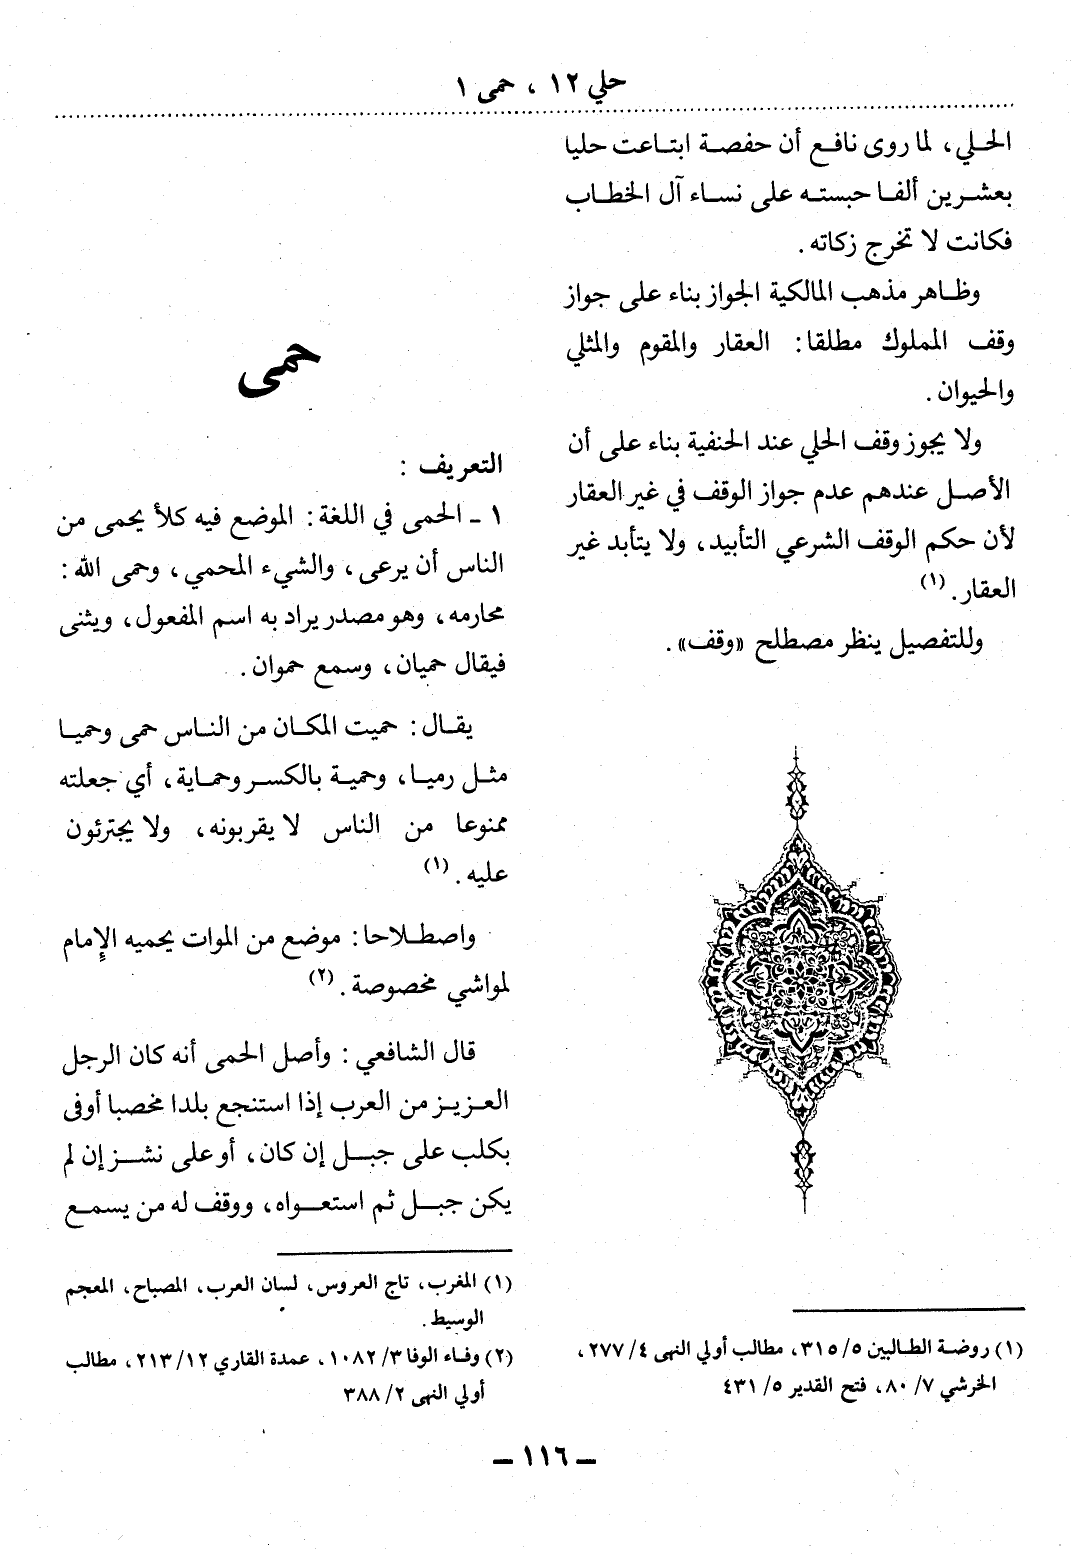 حلي ١٢ ، حمى ١
الحلي، لما روى نافع أن حفصة ابتاعت حليا
بعشرين ألفا حبسته على نساء آل الخطاب
فكانت لا تخرج زكاته .
وظاهر مذهب المالكية الجواز بناء على جواز
وقف المملوك مطلقا: العقار والمقوم والمثلي
والحيوان .
ولا يجوز وقف الحلي عند الحنفية بناء على أن
الأصل عندهم عدم جواز الوقف في غير العقار
لأن حكم الوقف الشرعي التأبيد، ولا يتأبد غير
العقار. (١)
وللتفصيل ينظر مصطلح «وقف» .
(١) روضة الطالبين ٥/ ٣١٥، مطالب أولي النهى ٤/ ٢٧٧،
الخرشي ٧/ ٨٠، فتح القدير ٥/ ٤٣١
حمى
التعريف :
١ ـ الحمى في اللغة : الموضع فيه كلأ يحمى من
الناس أن يرعى ، والشيء المحمي ، وحمى الله :
محارمه، وهو مصدر يراد به اسم المفعول، ويثنى
فيقال حميان، وسمع حموان .
يقال : حميت المكان من الناس حمى وحميا
مثل رميا، وحمية بالكسر وحماية، أي جعلته
ممنوعا من الناس لا يقربونه، ولا يجترئون
عليه . (١)
واصطلاحا: موضع من الموات يحميه الإمام
لمواشي مخصوصة . (٢)
قال الشافعي : وأصل الحمى أنه كان الرجل
العزيز من العرب إذا استنجع بلدا مخصبا أوفى
بكلب على جبل إن كان، أو على نشز إن لم
يكن جبل ثم استعواه، ووقف له من يسمع
(١) المغرب، تاج العروس، لسان العرب، المصباح، المعجم
الوسيط .
(٢) وفاء الوفا ٣/ ١٠٨٢ ، عمدة القاري ١٢/ ٢١٣ ، مطالب
أولي النهى ٢/ ٣٨٨
ـ ١١٦ ـ